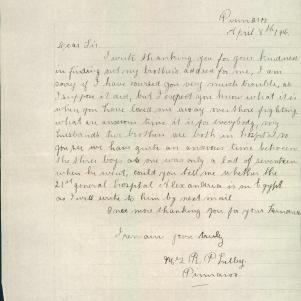 Pinnaroo
April 8th/16
Dear Sir.
I write thanking you for your kindness
in finding out my brother's address for me, I am
sorry if I have caused you very much trouble, as
I suppose it did, but I expect you know what it is
when you have loved one away over there fighting
what an anxious time it is for everybody, my
husbands two brothers are both in hospital so
you see we have quite an anxious time between
the three boys as one was only a lad of seventeen
when he went, could you tell me whether the
21st general hospital Alexandria is in Egypt
as I will write to him by next mail
Once more thanking you for your
I remain yours truly
Mrs R. P. Lilley
Pinnaroo